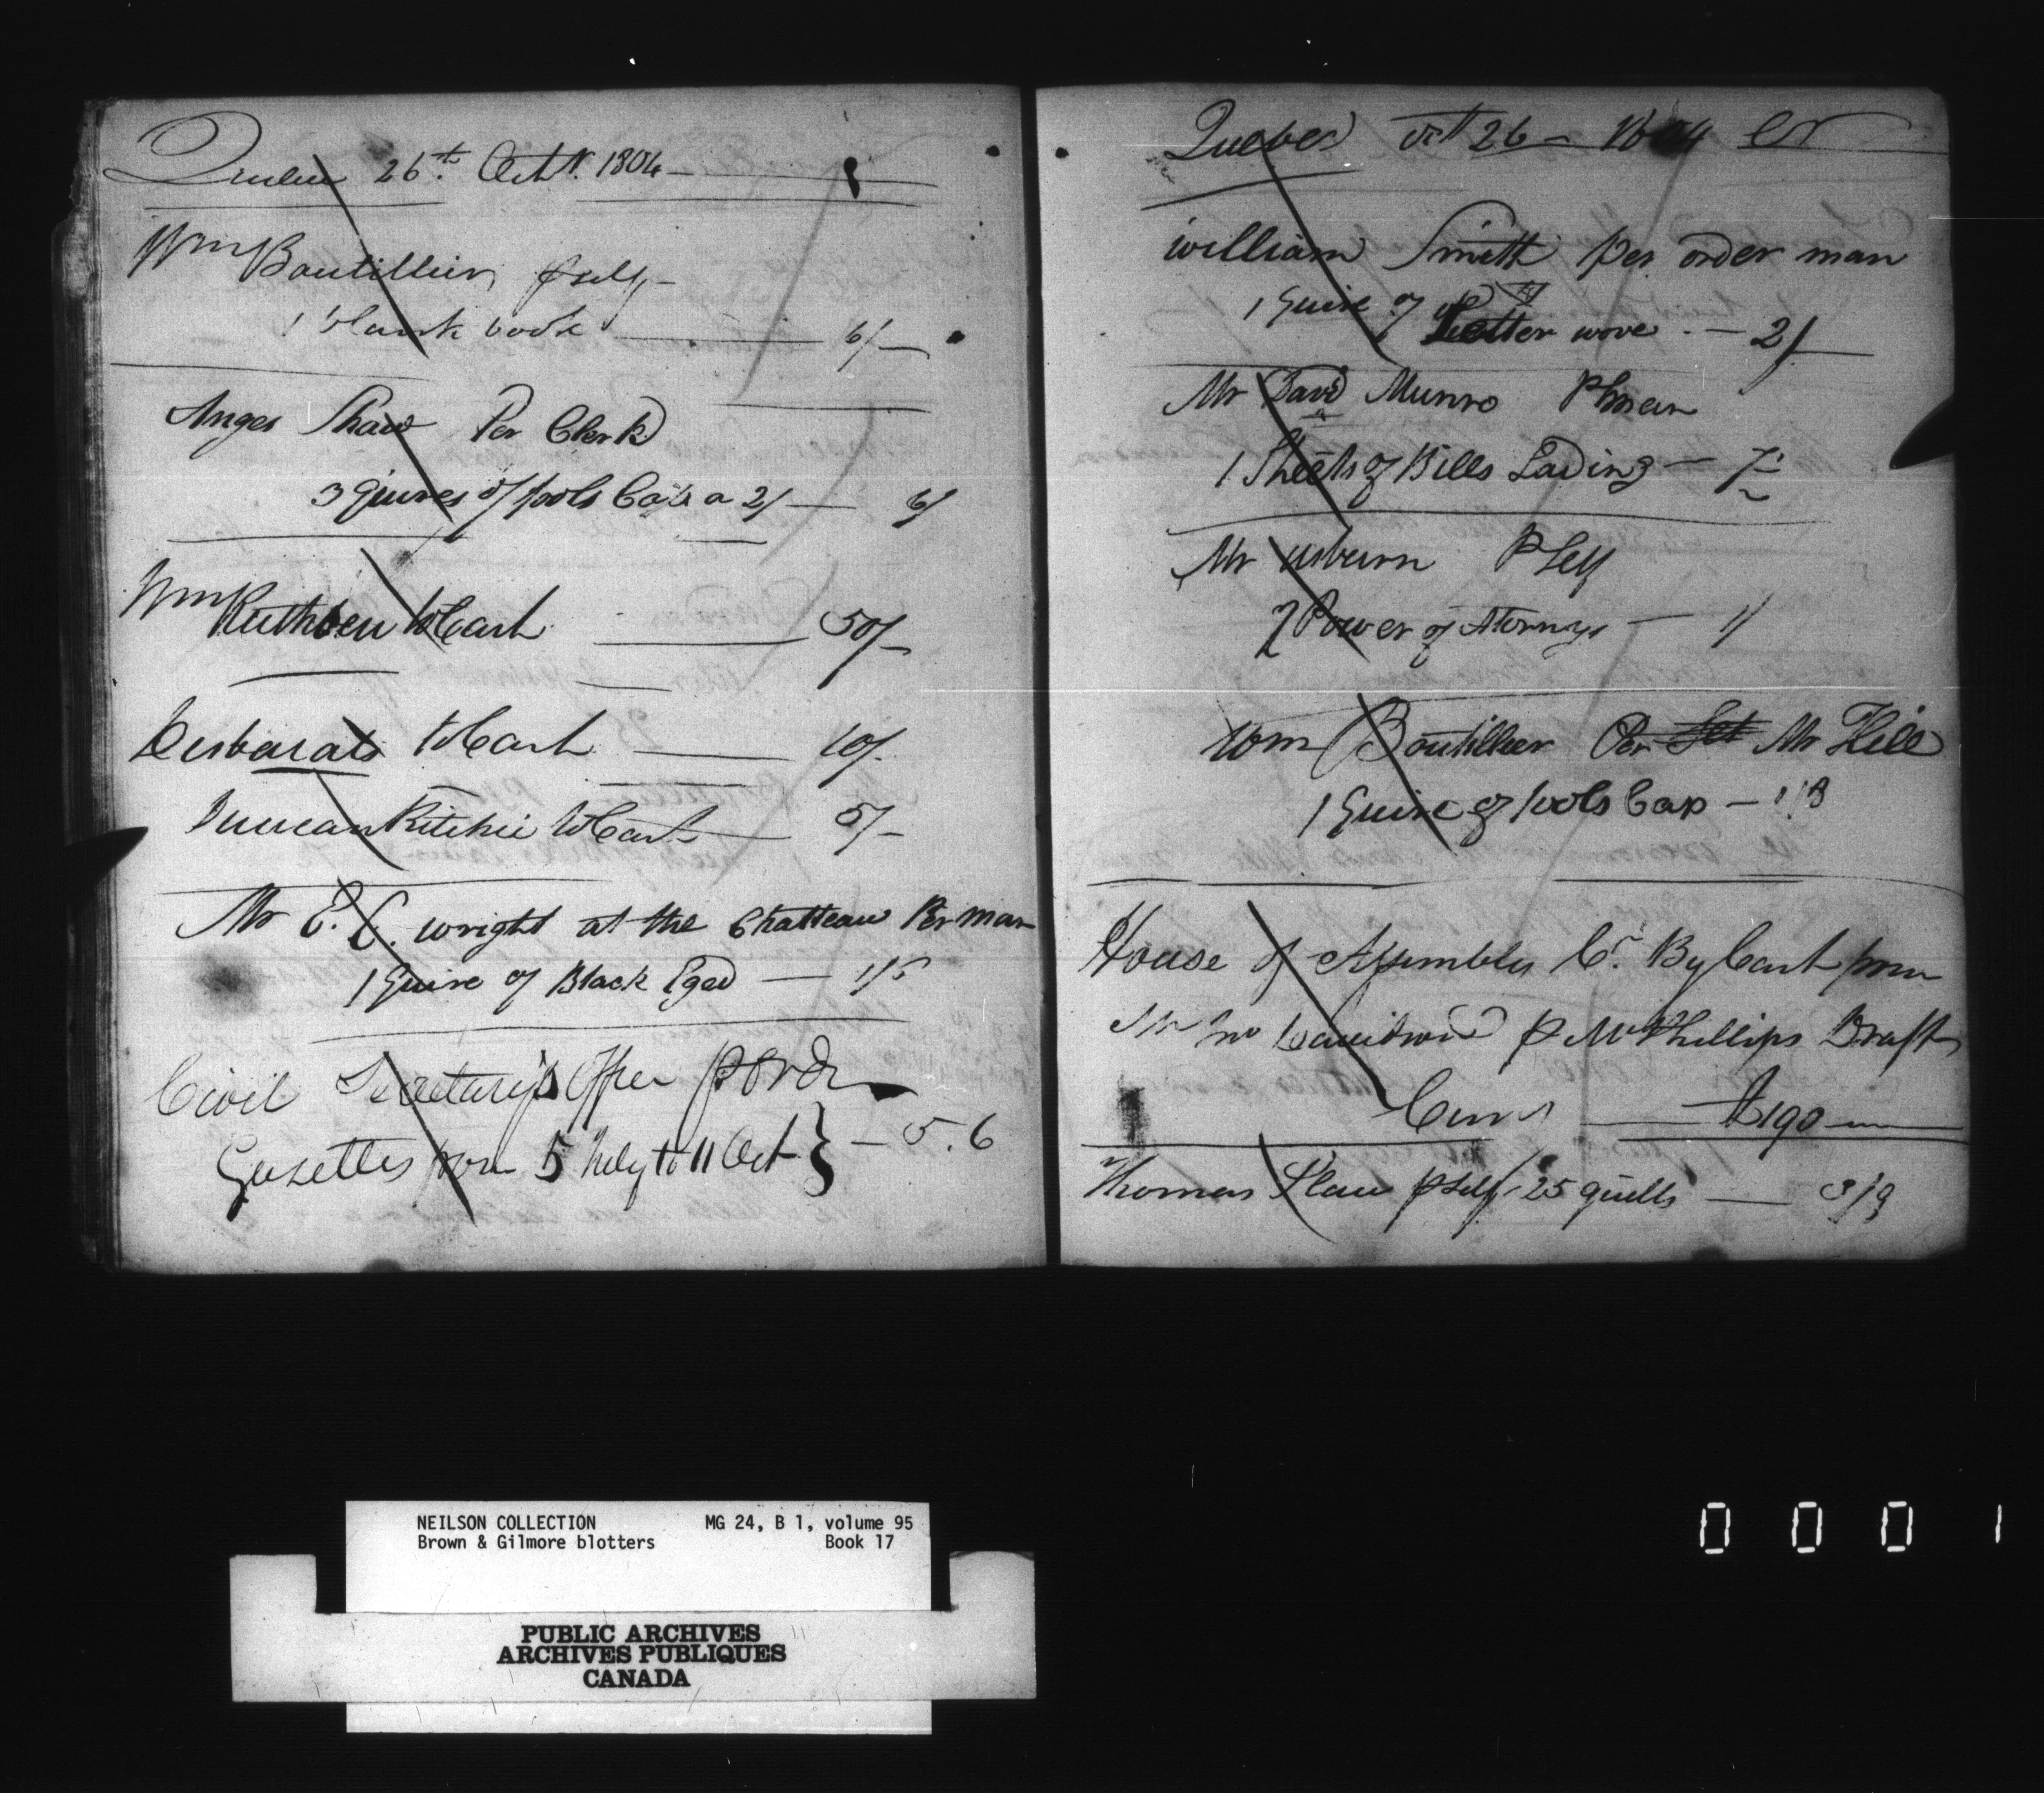 Quebec 26th Octr. 1804
Wm Boutillier, p self
1 blank book 6/
Anges Shaw Per Clerk
3 Quires of fools Cap a 2/ 6/
Wm Ruthven to Cash 50/
Desbarats to Cash 10/
Duncan Ritchie to Cash 5/
Mr E. C. wright at the Chatteau Per man
1 Quire of Black Eged
Civil Secretary's Office p Ordr
Gazettes from 5 July to 11 Oct } 5.6
Quebec Oct 26 1804
william Smith per order man
1 Quire of
Letter wove 2/
Mr Davd Munro P man
1 Sheets of Bills Lading
Mr usburn P Self
2 Power of Atornys 1/
Wm Boutillier Per Mr Hill
1 Quire of fools Cap
House of Assembly Cr. By Cash from
p Mr Phillips Draft
£190
Thomas p self 25 quills 3/9
NEILSON COLLECTION MG 24, B 1, volume 95
Brown & Gilmore blotters Book 17
PUBLIC ARCHIVES
ARCHIVES PUBLIQUES
CANADA
0001